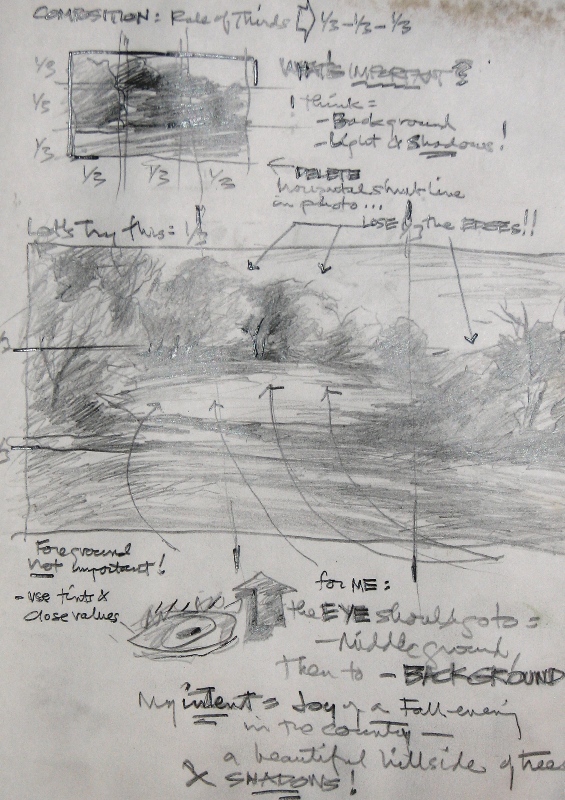 COMPOSITION: Rule of Thirds ⇒ 1/3-1/3-1/3
1/3
1/3
1/3
1/3 1/3 1/3
WHAT'S IMPORTANT?
I think=
- Background
- Light & Shadows!
← DELETE
horizontal shrub line
in photo...
Let's Try this: 1/3
LOSE the TREES!!
Foreground
Not important!
- use tints &
close values
for ME:
the EYE should go to =
- Middleground,
Then to - BACKGROUND
My intent = Joy of a Fall-evening
in the country —
a beautiful hillside of trees
& SHADOWS!